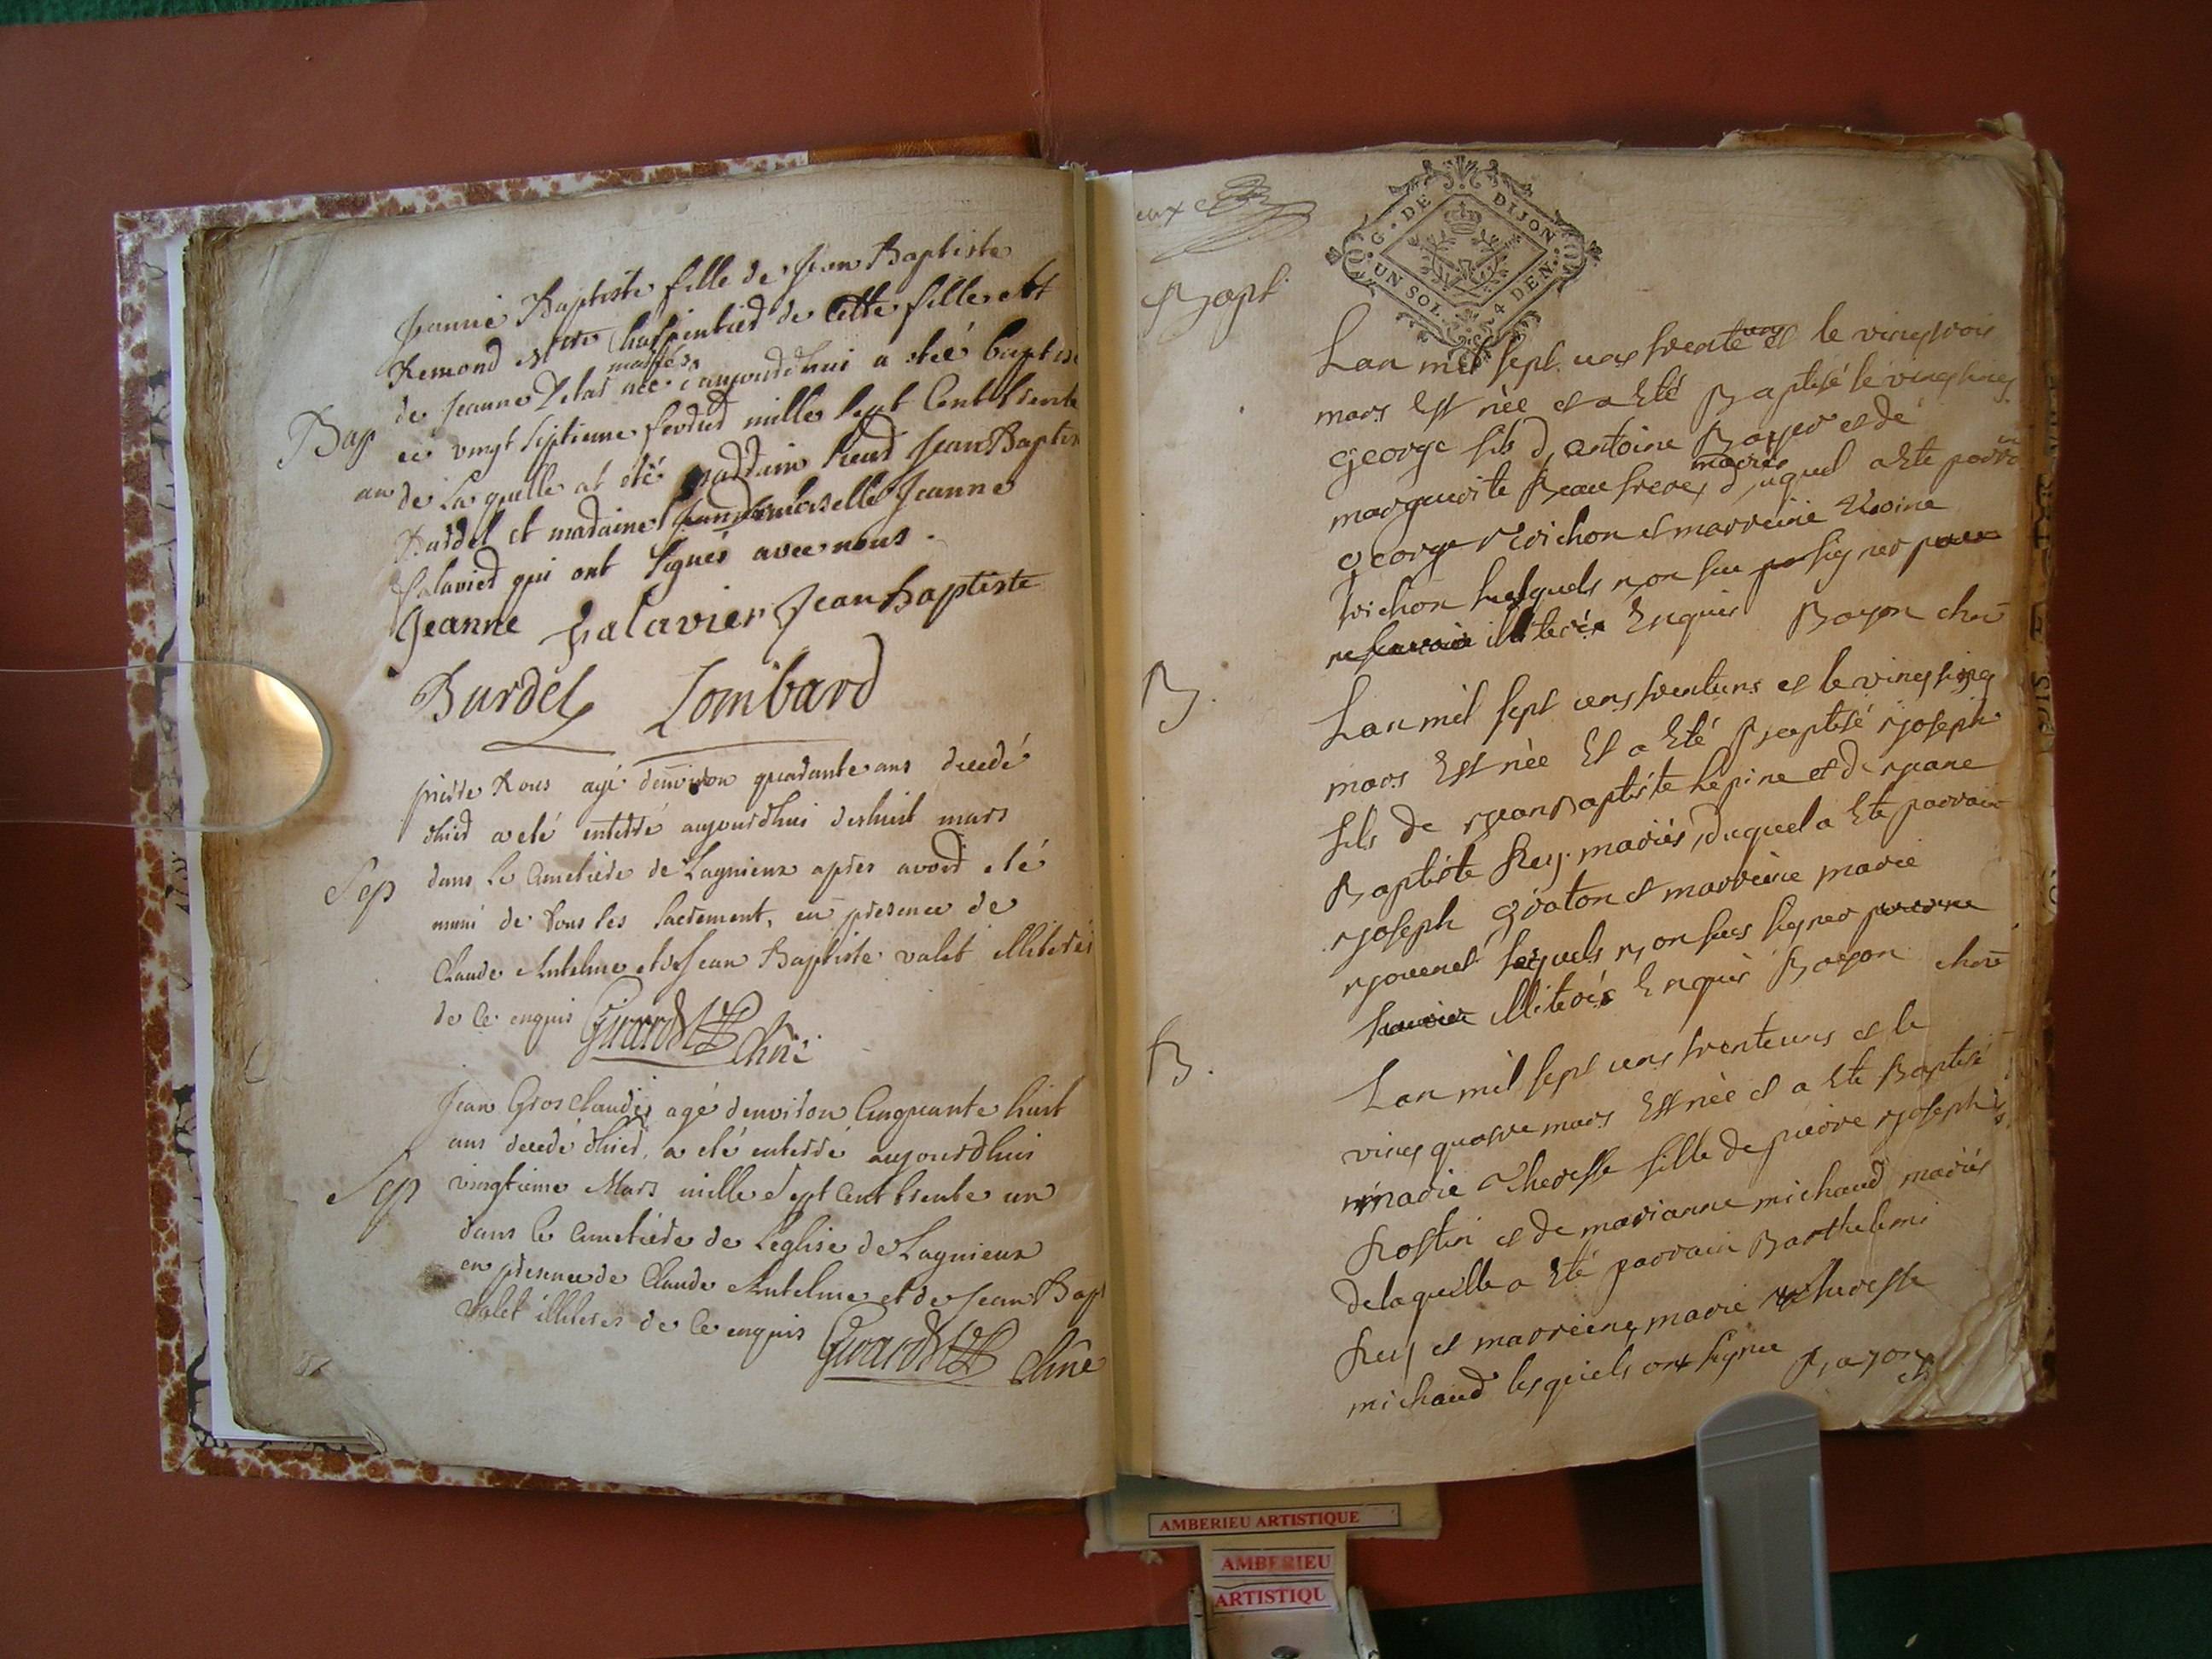 Jeanne Baptiste fille de Jean Baptiste
Remond Mtre Charpentier de cette fille et
mariés
de Jeanne Delas née aujourdhui a été baptisé
Bap
ce vingt septieme fevrier mille sept Cent trente
un de Laquelle at été parrain Sieur Jean Baptis
Burdel et madaine demoiselle Jeanne
Salavier qui ont signés avec nous.
Jeanne Salavier Jean baptiste
Burdel Lombard
pierre Rous agé denviron quarante ans decedé
dhier a été enterré aujourdhui dixhuit mars
Sep
dans Le Cimetiere de Lagnieux apres avoir eté
muni de tous les sacrement, en presence de
Claude Antelme et de Jean Baptiste valet illiterés
de Ce enquis Girard chne
Jean Gros Claude agé denviron Cinquante huit
ans decedé dhier, a été enterré aujourdhui
Sep
vingtieme Mars mille Sept Cent trente un
dans le Cimetiere de Leglise de Lagnieux
en presence de Claude Antelme et de Jean Bapt
valet illiteres de Ce enquis Girard Chne
G. DE DIJON
UN SOL. 4 DEN.
Bapt
Lan mil sept cens trente uns et le vingtrois
mars Est née et a Eté Baptisé le vingcinq
George fils d'antoine Boyer et de
marguerite Beaufrere, mariés duquel a Ete parrain
george Trichon et marreine
trichon lesquels n'on sceu signer
illiterés Enquis Bayon chne
B.
Lan mil sept cens trenteuns et le vingcinq
mars Est née Et a Eté Baptisé Joseph
fils de Jean Baptiste Lepine et de Jeane
Baptiste Rey mariés, duquel a Ete parrain
Joseph graton et marreine marie
Jouenet lesquels n'on sceu signer
illiterés Enquis Bayon chne
B.
Lan mil sept cens trenteuns et le
vingquatre mars Est née et a Ete Baptisé
marie Theresse fille de pierre Joseph
Rostin et de marianne michaud mariés
delaquelle a Eté parrain Barthelemi
Rey et marreine, marie theresse
michaud lesquels ont signée Bayon
ch
AMBERIEU ARTISTIQUE
AMBERIEU
ARTISTIQU